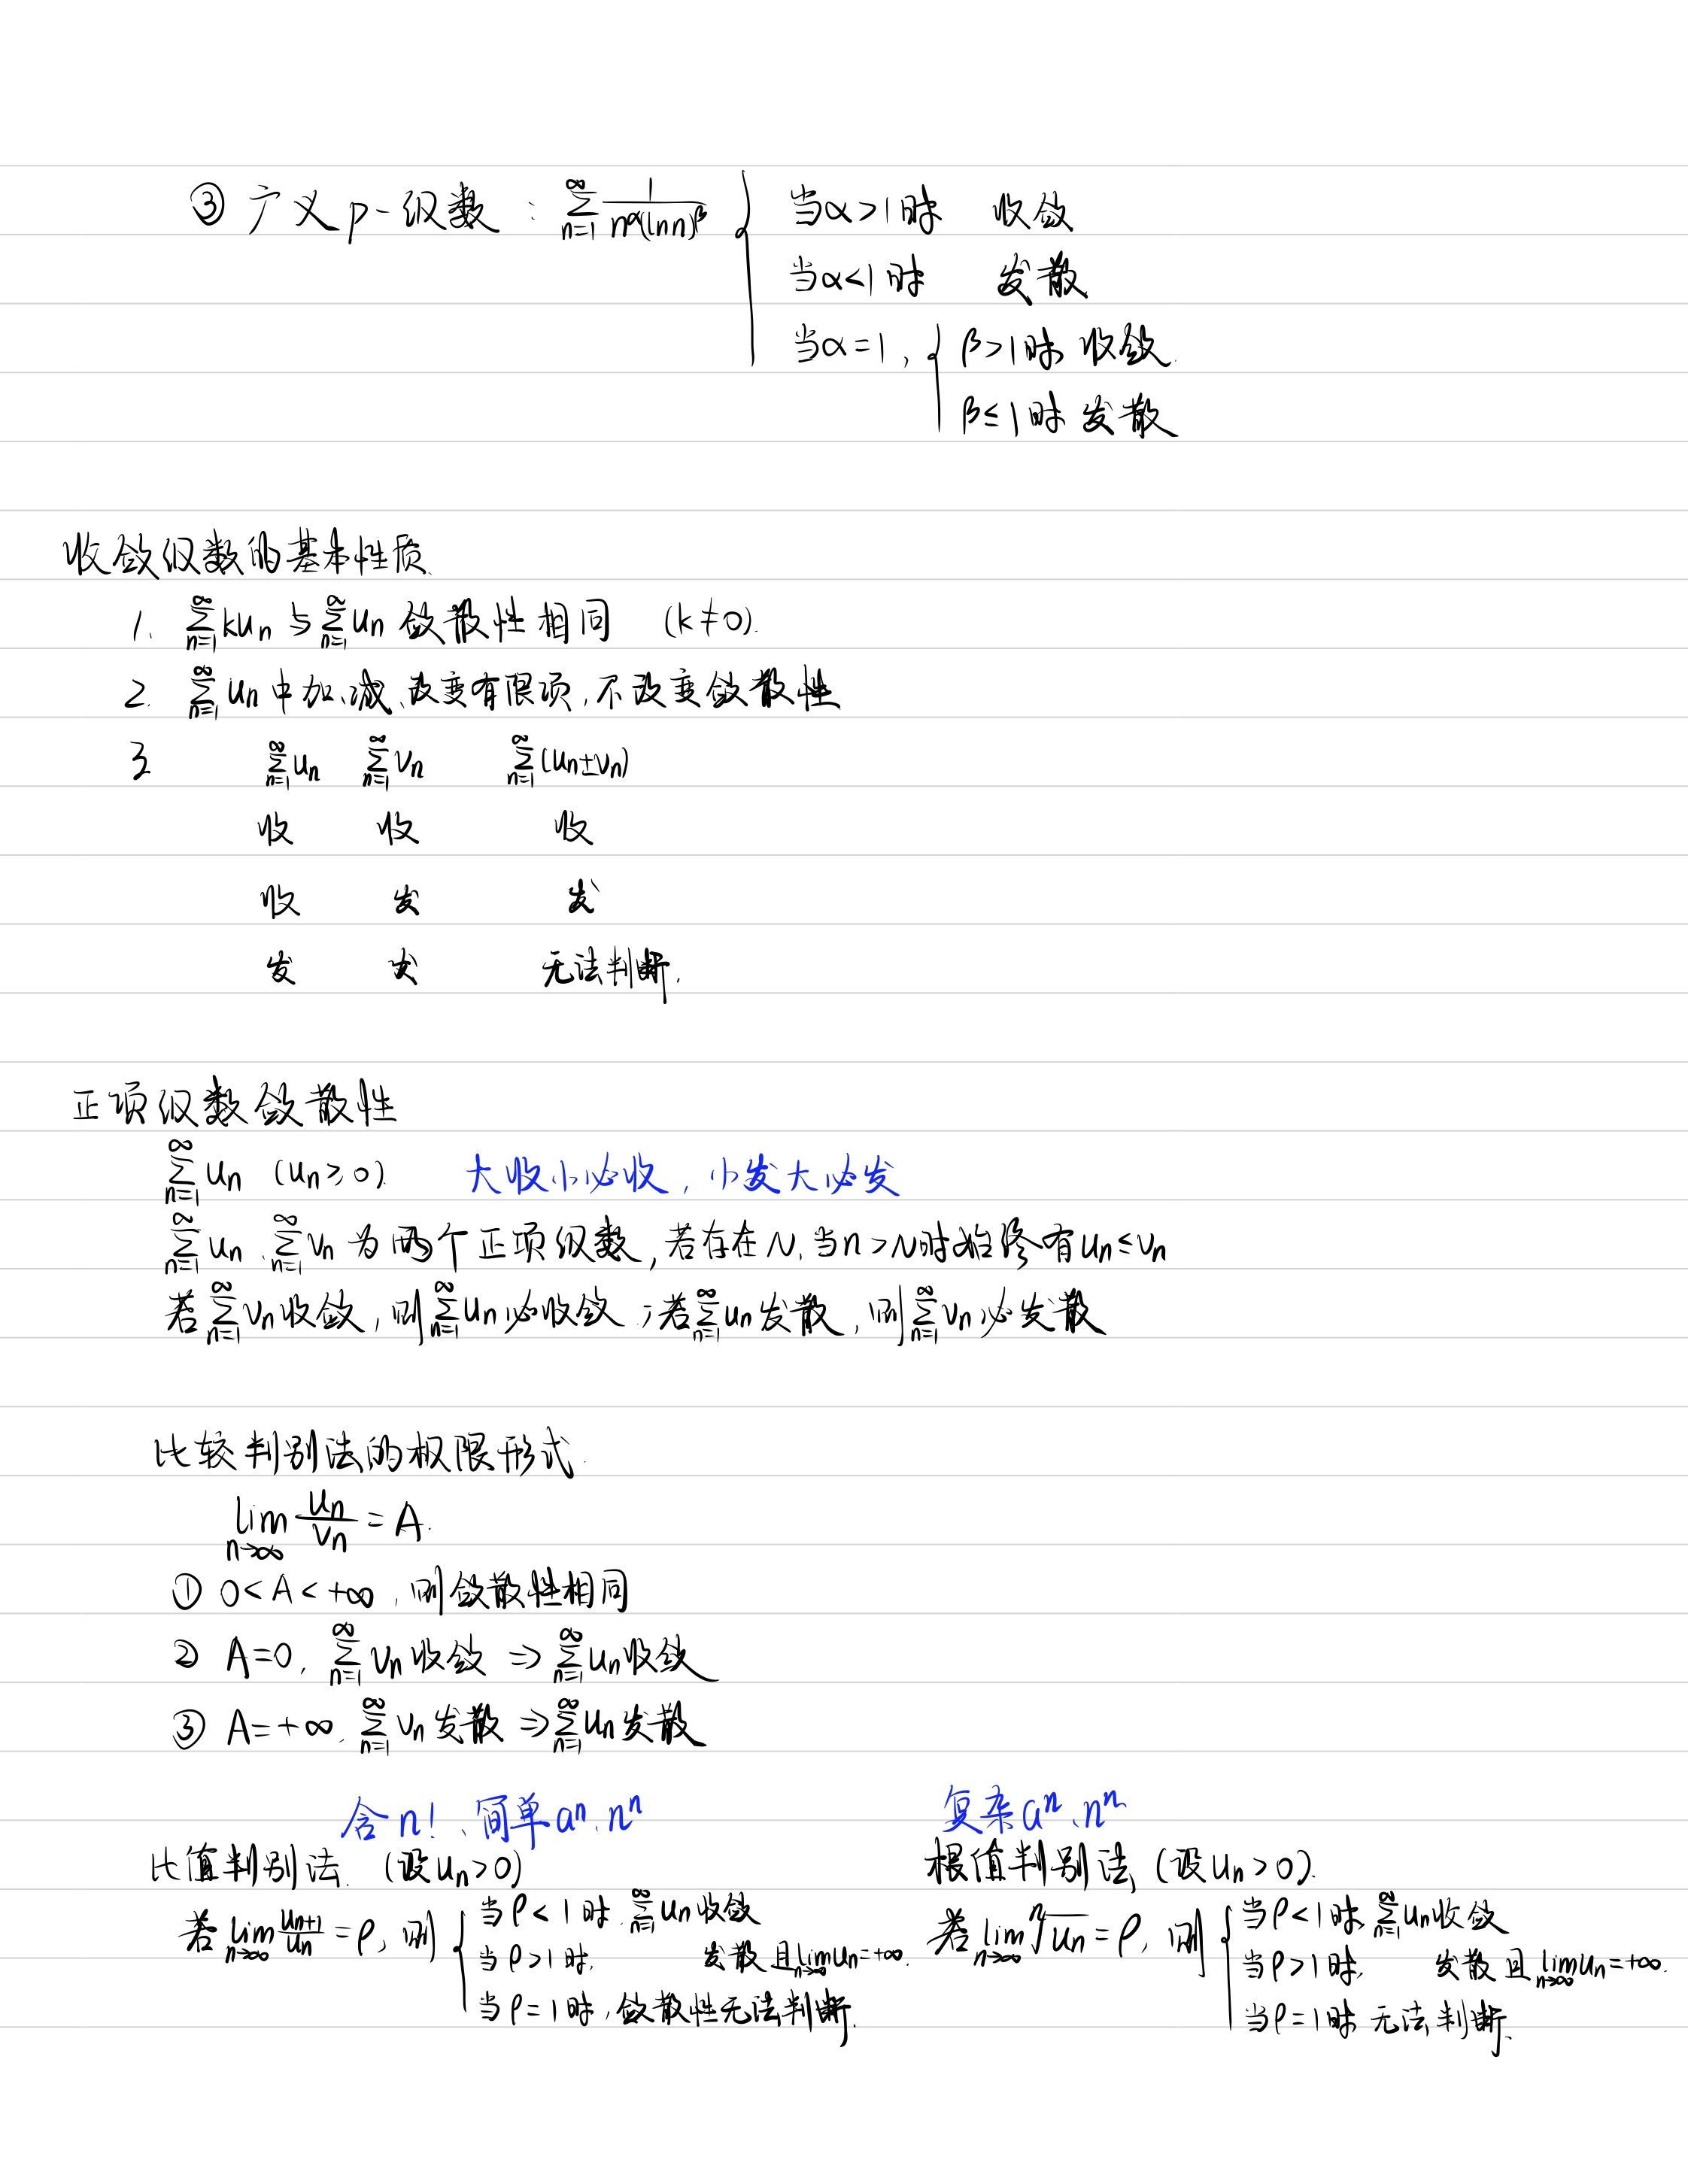 ③ 广义p-级数：∑_{n=1}^{∞} 1/(n^α(ln n)^β) { 当α>1时 收敛
当α<1时 发散
当α=1, { β>1时 收敛.
β≤1时 发散
收敛级数的基本性质.
1. ∑_{n=1}^{∞} kuₙ 与 ∑_{n=1}^{∞} uₙ 敛散性相同 (k≠0).
2. ∑_{n=1}^{∞} uₙ 中加、减、改变有限项, 不改变敛散性
3 ∑_{n=1}^{∞} uₙ ∑_{n=1}^{∞} vₙ ∑_{n=1}^{∞} (uₙ±vₙ)
收 收 收
收 发 发
发 发 无法判断.
正项级数敛散性
∑_{n=1}^{∞} uₙ (uₙ≥0). 大收小必收, 小发大必发
∑_{n=1}^{∞} uₙ、∑_{n=1}^{∞} vₙ 为两个正项级数, 若存在N, 当n>N时始终有uₙ≤vₙ
若 ∑_{n=1}^{∞} vₙ 收敛, 则 ∑_{n=1}^{∞} uₙ 必收敛; 若 ∑_{n=1}^{∞} uₙ 发散, 则 ∑_{n=1}^{∞} vₙ 必发散
比较判别法的极限形式.
lim_{n→∞} uₙ/vₙ = A.
① 0<A<+∞, 则敛散性相同
② A=0, ∑_{n=1}^{∞} vₙ 收敛 ⇒ ∑_{n=1}^{∞} uₙ 收敛
③ A=+∞, ∑_{n=1}^{∞} vₙ 发散 ⇒ ∑_{n=1}^{∞} uₙ 发散
含n!、简单aⁿ、nⁿ
比值判别法. (设uₙ>0)
若 lim_{n→∞} uₙ₊₁/uₙ = ρ, 则 { 当ρ<1时, ∑_{n=1}^{∞} uₙ 收敛
当ρ>1时, 发散且 lim_{n→∞} uₙ=+∞.
当ρ=1时, 敛散性无法判断.
复杂aⁿ、nⁿ
根值判别法 (设uₙ>0).
若 lim_{n→∞} ⁿ√uₙ = ρ, 则 { 当ρ<1时, ∑_{n=1}^{∞} uₙ 收敛
当ρ>1时, 发散且 lim_{n→∞} uₙ=+∞.
当ρ=1时 无法判断.